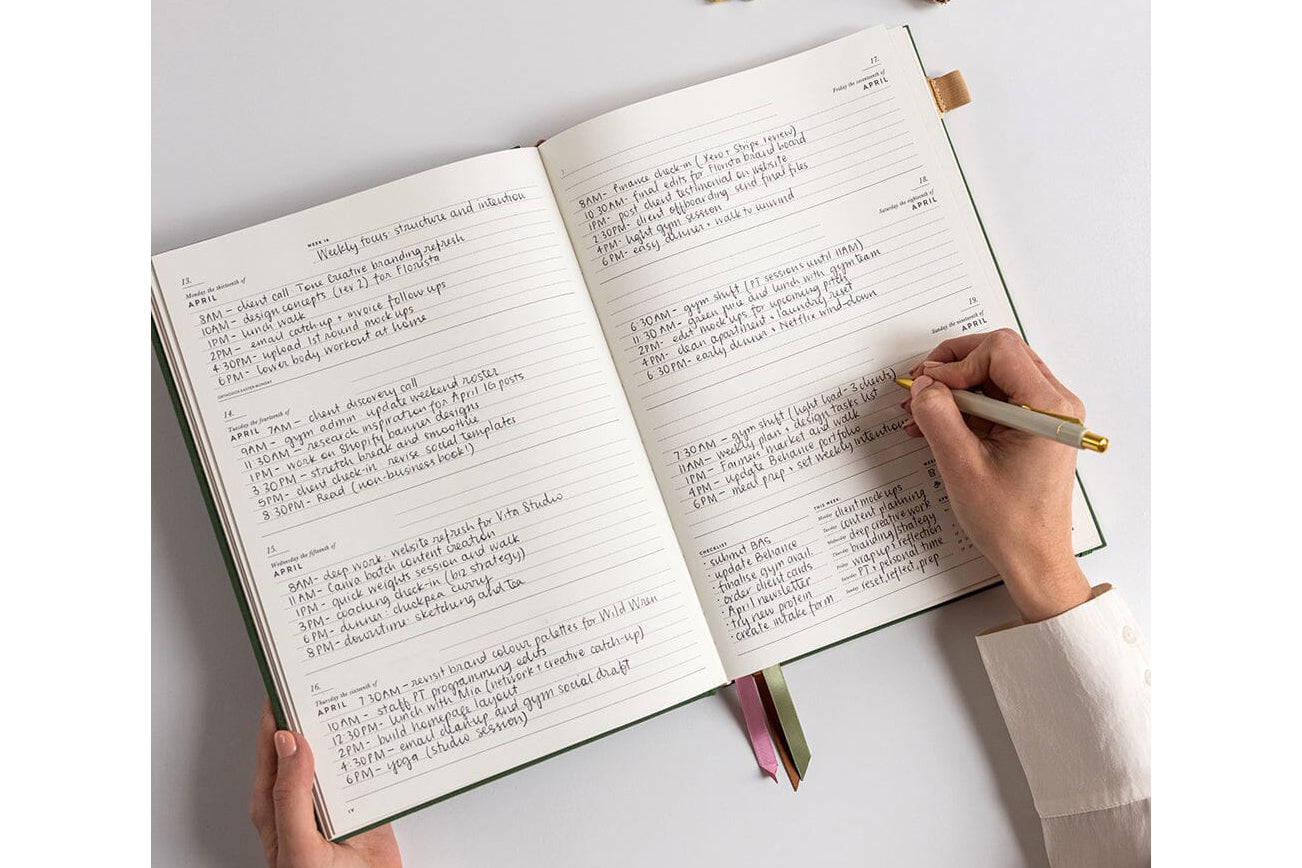 WEEK 16
Weekly focus: structure and intention
13.
Monday the thirteenth of
APRIL
8AM - client call: Tone Creative branding refresh
10AM - design concepts (rev 2) for Florista
1PM - lunch walk
2PM - email catch-up + invoice follow ups
4:30PM - upload 1st round mock ups
6PM - lower body workout at home
ORTHODOX EASTER MONDAY
14.
Tuesday the fourteenth of
APRIL
7AM - client discovery call
9AM - gym admin: update weekend roster
11:30AM - research inspiration for April IG posts
1PM - work on Shopify banner designs
3:30PM - stretch break and smoothie
5PM - client check-in: revise social templates
8:30PM - Read (non-business book!)
15.
Wednesday the fifteenth of
APRIL
8AM - deep work: website refresh for Vita Studio
11AM - Canva batch content creation
1PM - quick weights session and walk
3PM - coaching check-in (biz strategy)
6PM - dinner: chickpea curry
8PM - downtime: sketching and tea
16.
Thursday the sixteenth of
APRIL
7:30AM - revisit brand colour palettes for Wild Wren
10AM - staff PT programming edits
12:30PM - lunch with Mia (network + creative catch-up)
2PM - build homepage layout
4:30PM - email clean up and gym social draft
6PM - yoga (studio session)
17.
Friday the seventeenth of
APRIL
8AM - finance check-in (Xero + Stripe review)
10:30AM - final edits for Florista brand board
1PM - post client testimonial on website
2:30PM - client offboarding: send final files
4PM - light gym session
6PM - easy dinner + walk to unwind
18.
Saturday the eighteenth of
APRIL
6:30AM - gym shift (PT sessions until 11AM)
11:30AM - green juice and lunch with gym team
2PM - edit mock ups for upcoming pitch
4PM - clean apartment + laundry reset
6:30PM - early dinner + Netflix wind-down
19.
Sunday the nineteenth of
APRIL
7:30AM - gym shift (light load - 3 clients)
11AM - weekly plan + design tasks list
1PM - Farmers market and walk
4PM - update Behance portfolio
6PM - meal prep + set weekly intention
CHECKLIST
· submit BAS
· update Behance
· finalise gym avail.
· order client cards
· April newsletter
· try new protein
· create intake form
THIS WEEK:
Monday client mock ups
Tuesday content planning
Wednesday deep creative work
Thursday branding strategy
Friday wrap up + reflection
Saturday PT + personal time
Sunday reset, reflect, prep